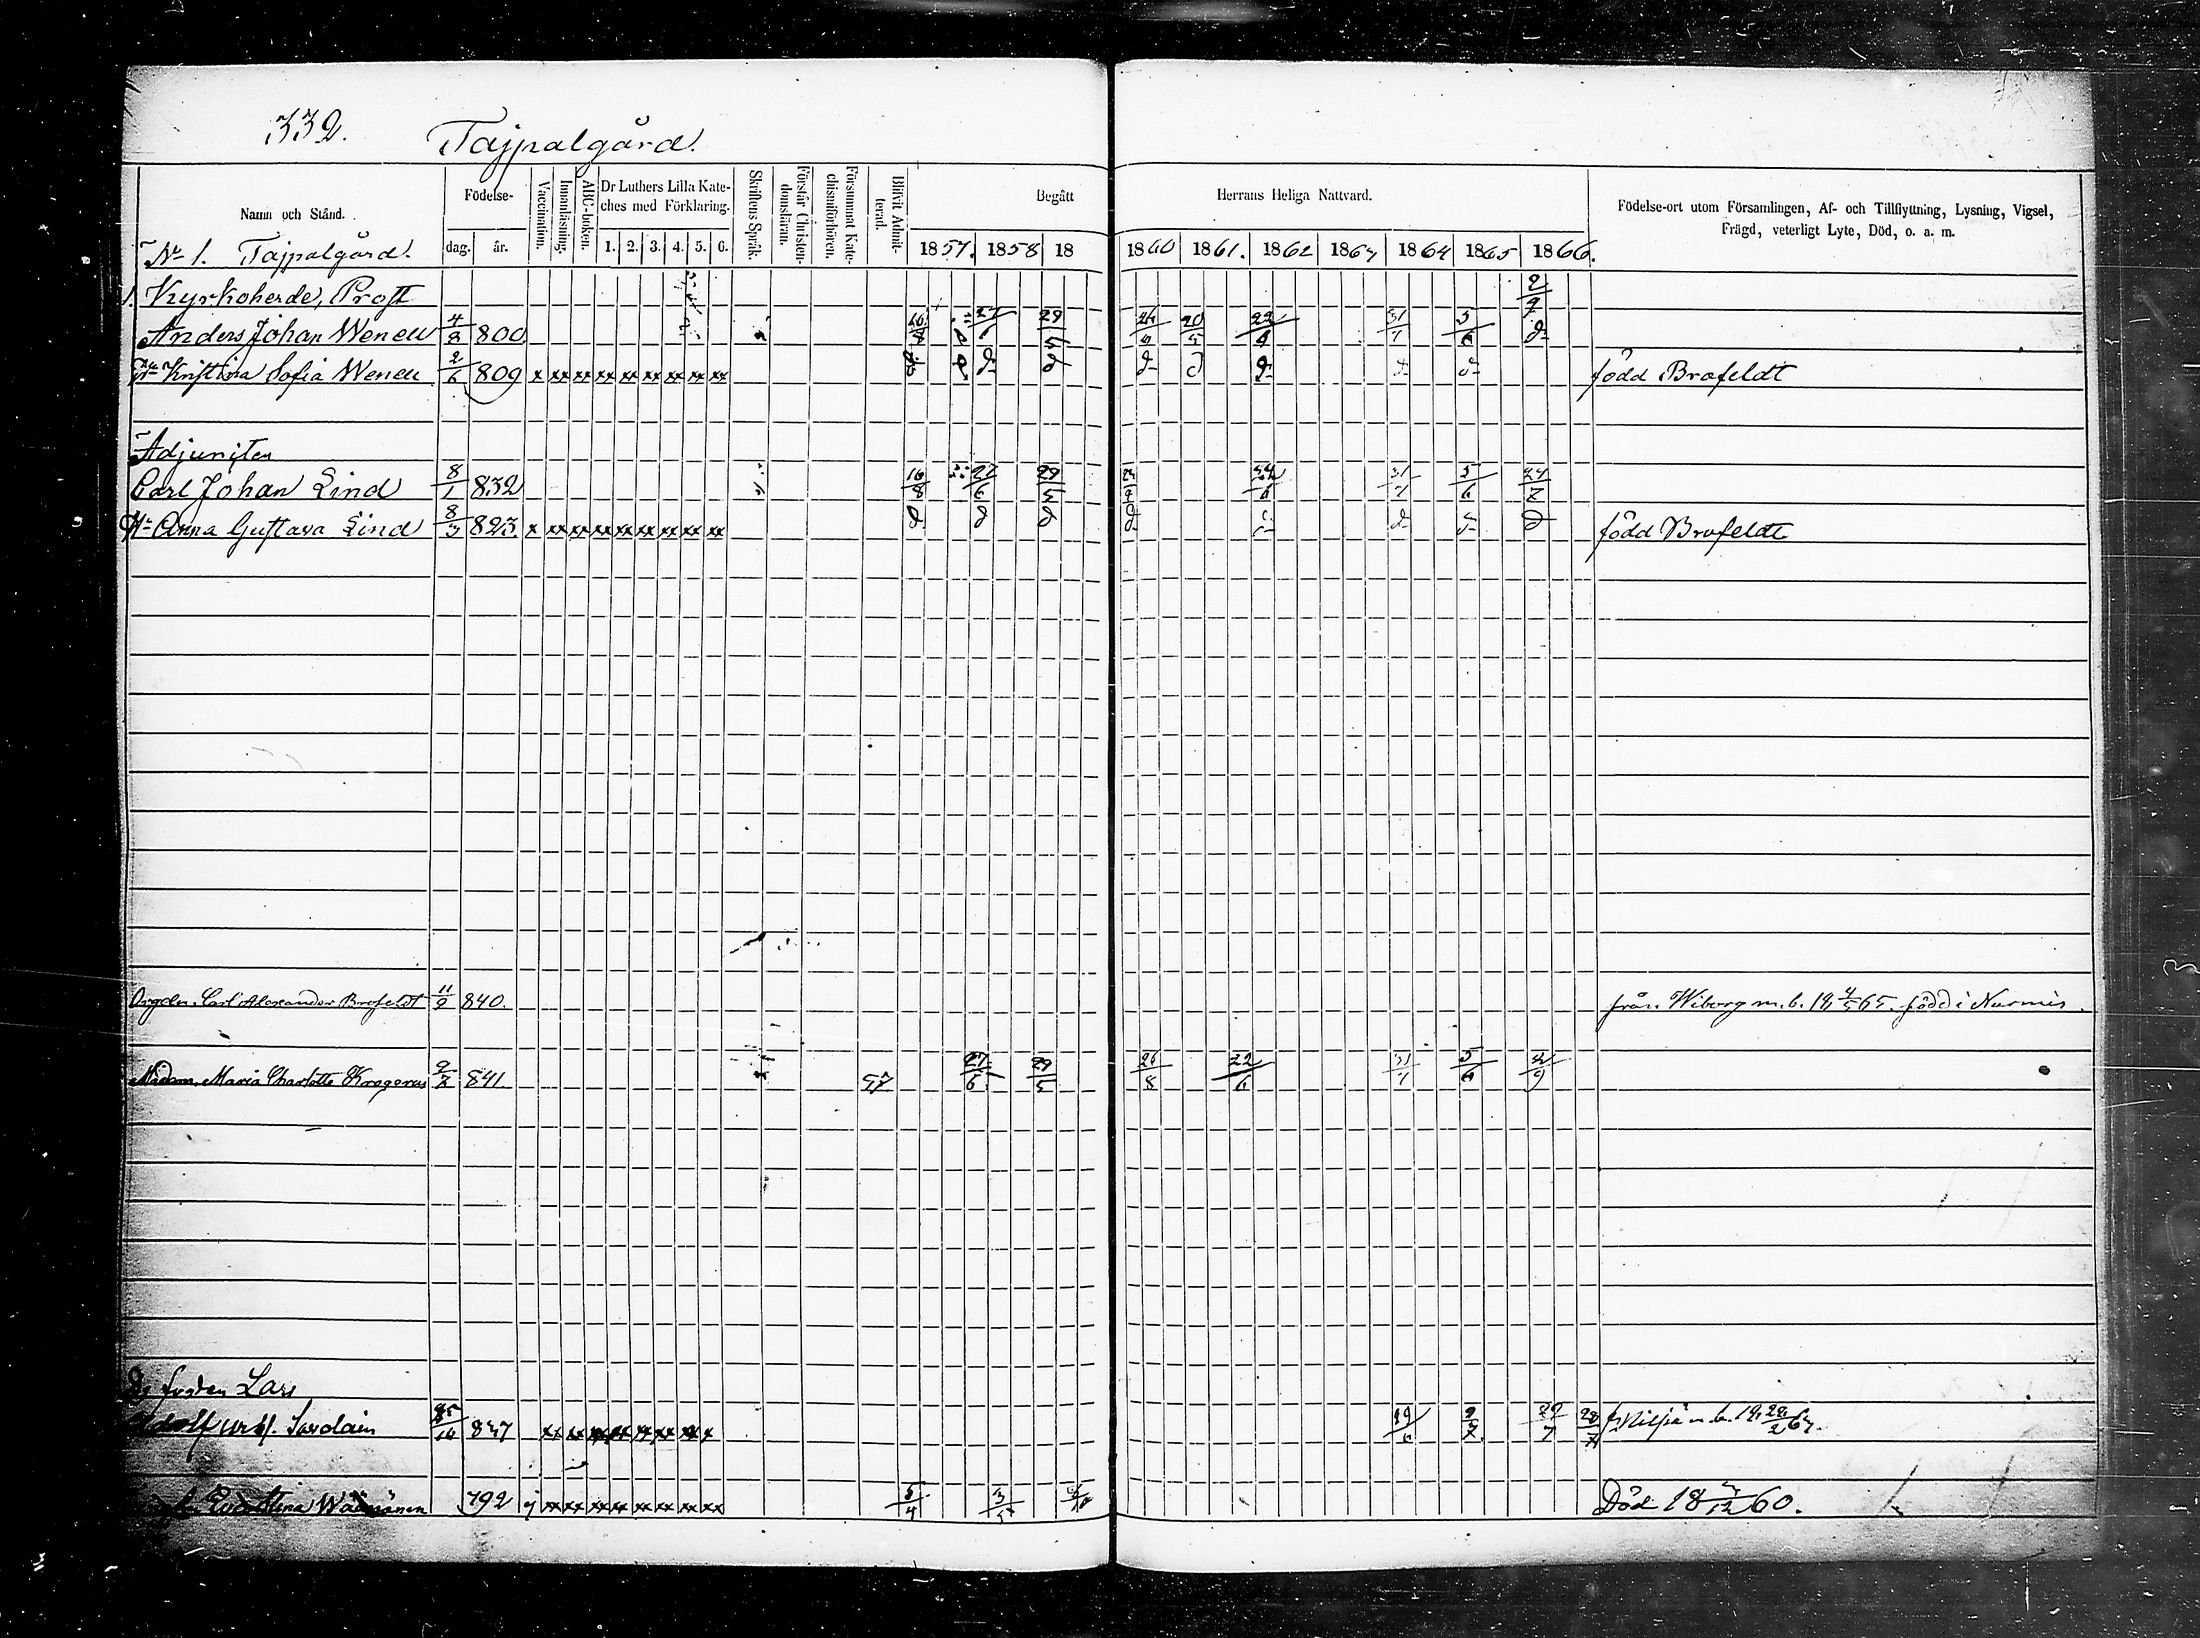 332.
Tajpalgård.
Namn och Stånd.
Födelse-
dag. år.
Vaccination.
Innanläsning.
ABC-boken.
Dr Luthers Lilla Kate-
ches med Förklaring.
1. 2. 3. 4. 5. 6.
Skriftens Språk.
Förstår Christen-
domsläran.
Försummat Kate-
chismiförhören.
Blifvit Admit-
terad.
Begått Herrans Heliga Nattvard.
1857. 1858 18 1860 1861. 1862 1863 1864 1865 1866.
Födelse-ort utom Församlingen, Af- och Tillflyttning, Lysning, Vigsel,
Frägd, veterligt Lyte, Död, o. a. m.
No 1. Tajpalgård.
1. Kyrkoherde, Prost 2/9
Anders Johan Wenell 4/8 800 27/6 29/5 20/5 22/6 31/7 5/6 d-
Kristina Sofia Wenell 2/6 809 x xx xx xx xx xx xx xx xx d d- d d- d d- d- d- född Brofeldt
Adjunkten
Carl Johan Lind 8/1 832 16/8 27/6 29/5 31/7 5/6
Anna Gustava Lind 8/3 823. x xx xx xx xx xx xx xx xx d d d d d- d född Brofeldt
Orgeln. Carl Alexander Brofeldt 11/9 840. från Wiborg m.b. 19, 4/5 65. född i Nurmis.
Madam. Maria Charlotta Krogerus 841. 57 27/6 29/5 26/8 22/6 31/7 5/6 2/9
Lars
Adolf 837 19/6 9/7 29/7 m.b. 19,
Eva Stina Wäänänen 792 j xx xx xx xx xx xx xx xx 5/4 Död 18 /12 60.